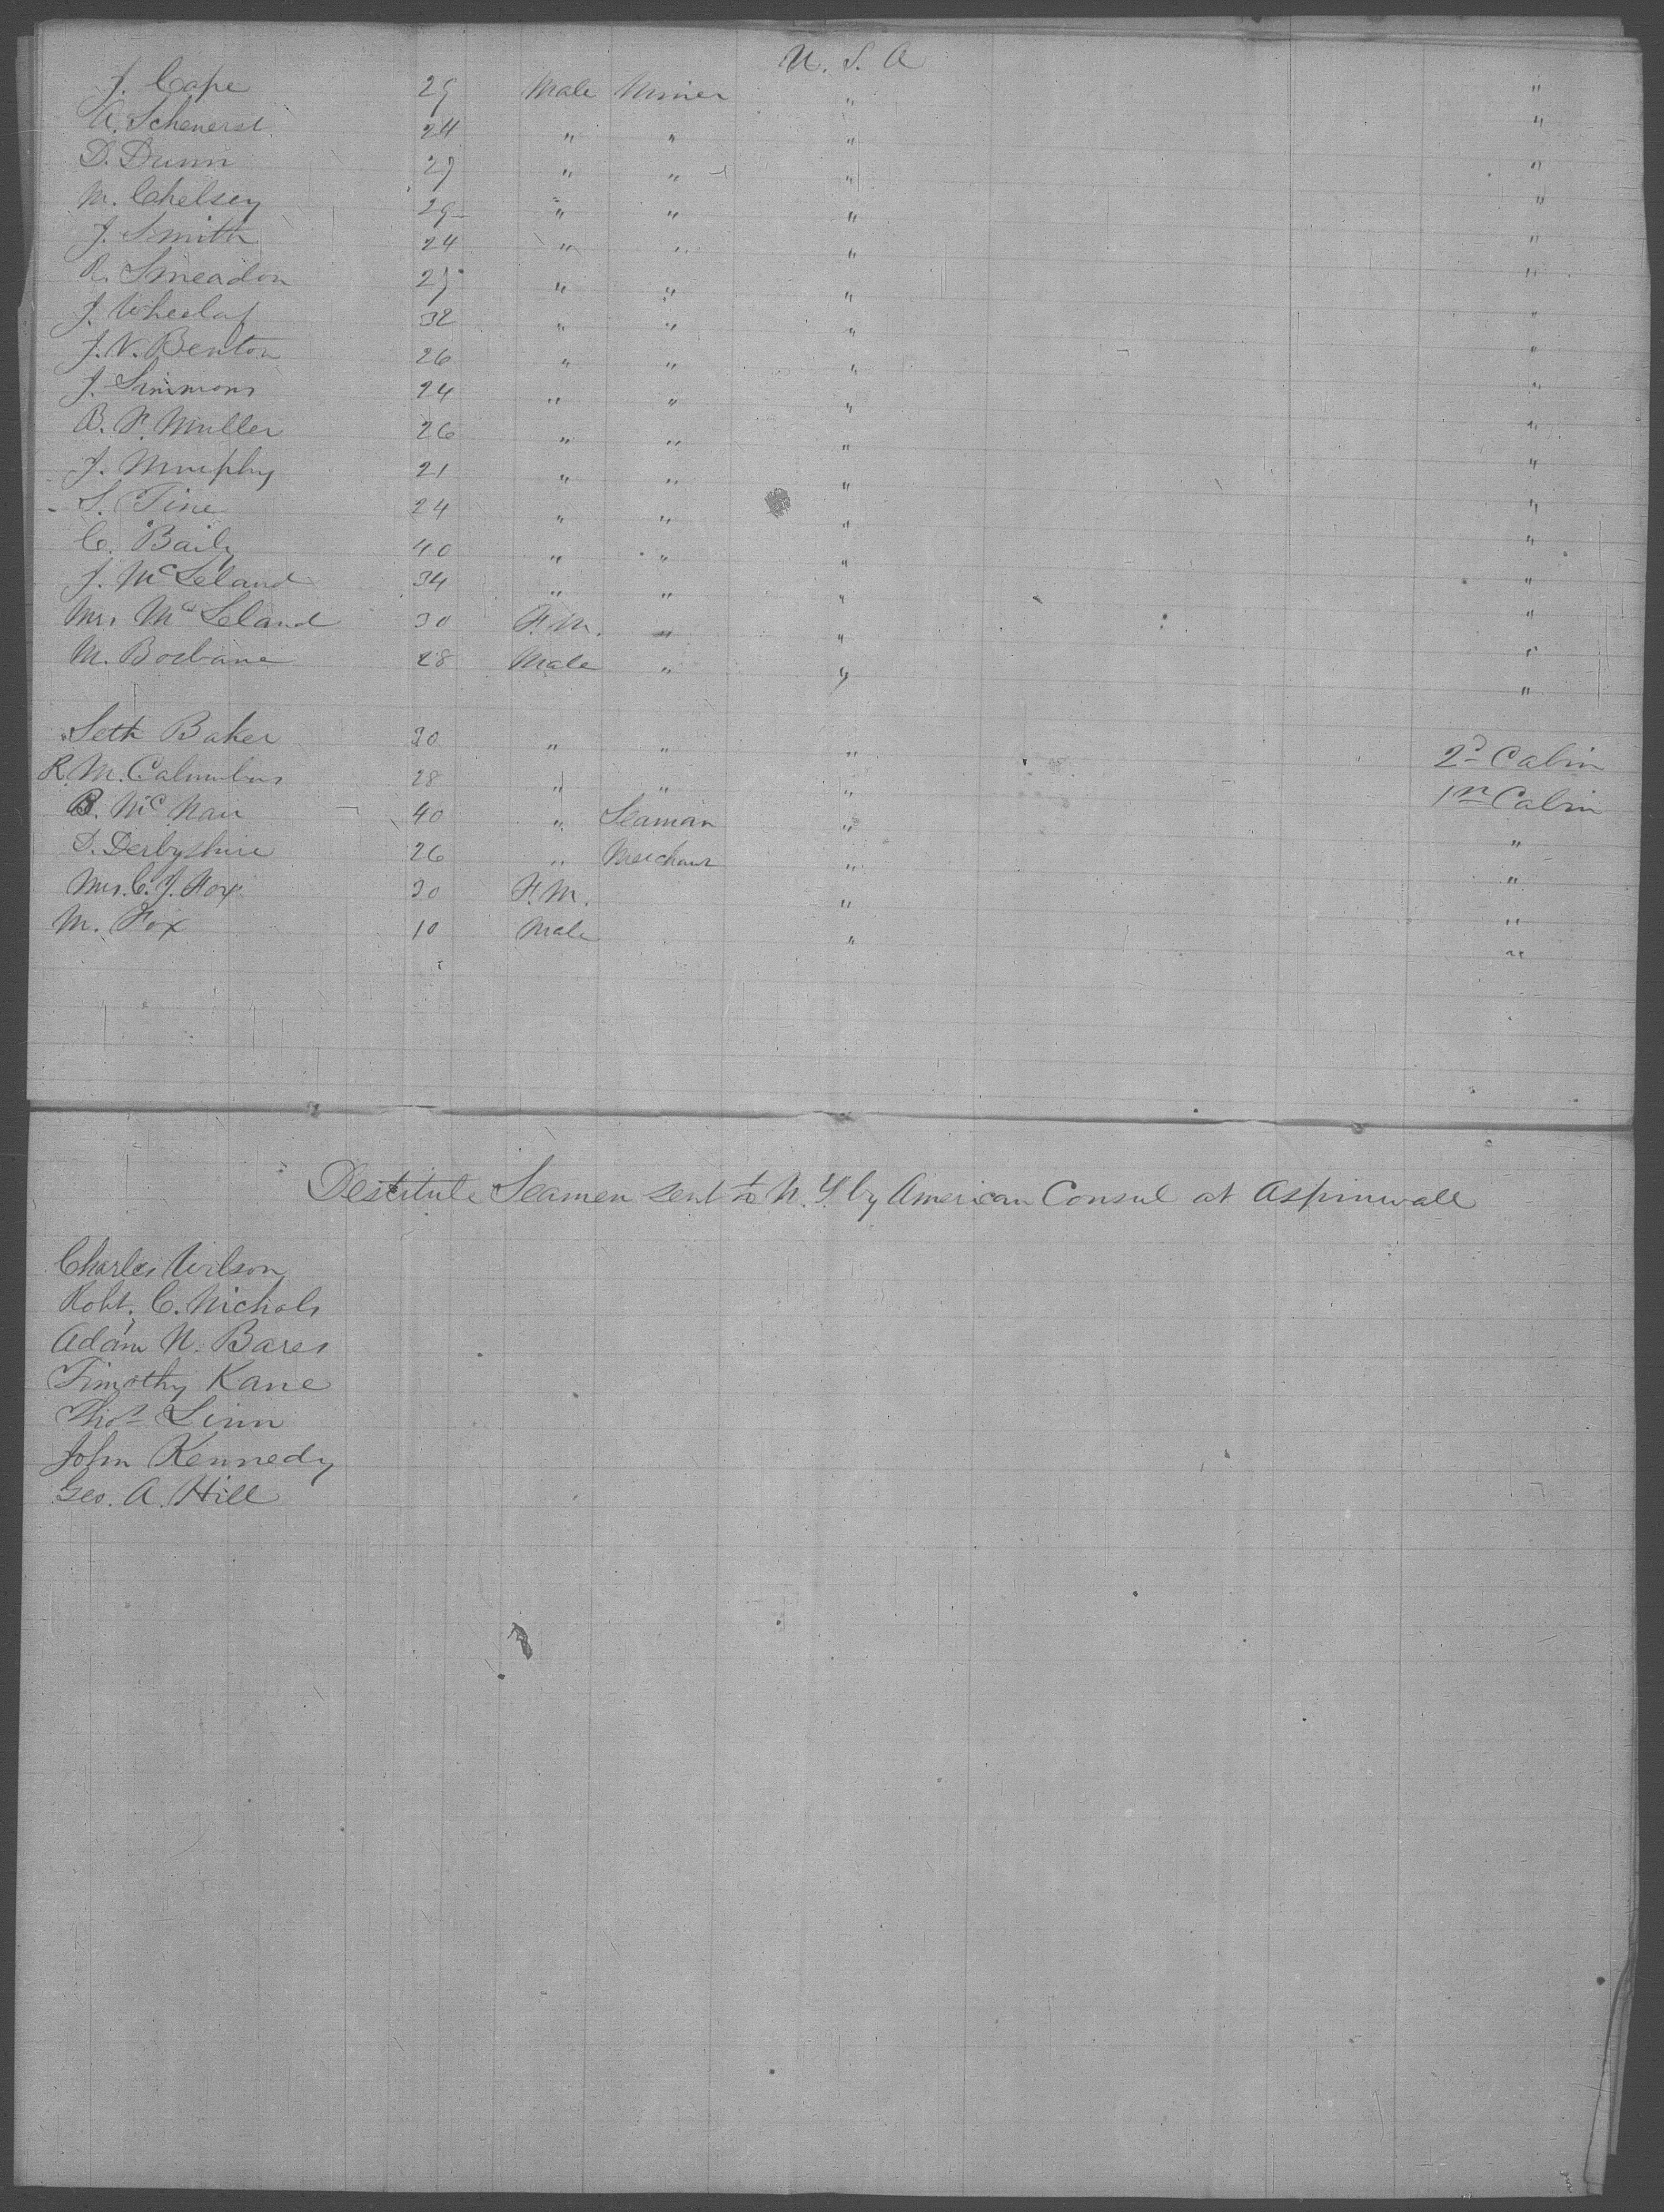 U. S. A
J. Cape 29 Male Miner " "
A. Scheuerst 24 " " " "
D. Dunn 27 " " " "
M. Chelsey 29 " " " "
J. Smith 24 " " " "
R. Smeadon 25 " " " "
J. 32 " " " "
J. V. Benton 26 " " " "
J. Simmons 24 " " " "
B. F. Muller 26 " " " "
J. Murphy 21 " " " "
S. Tine 24 " " " "
C. Baily 40 " " " "
J. McLeland 34 " " " "
Mrs McLeland 30 F.M. " " "
M. Borbane 28 Male " " "
Seth Baker 30 " " " 2d Cabin
R. M. Calumbus 28 " " " 1st Cabin
B. McNair 40 " Seaman " "
S. Derbyshire 26 " Merchant " "
Mrs. C. J. Fox 30 F.M. " "
M. Fox 10 Male " "
Destitute Seamen sent to N. Y. by American Consul at Aspinwall
Charles Wilson
Robt. C. Nichols
Adam N. Bares
Timothy Kane
Thos Linn
John Kennedy
Geo. A. Hill